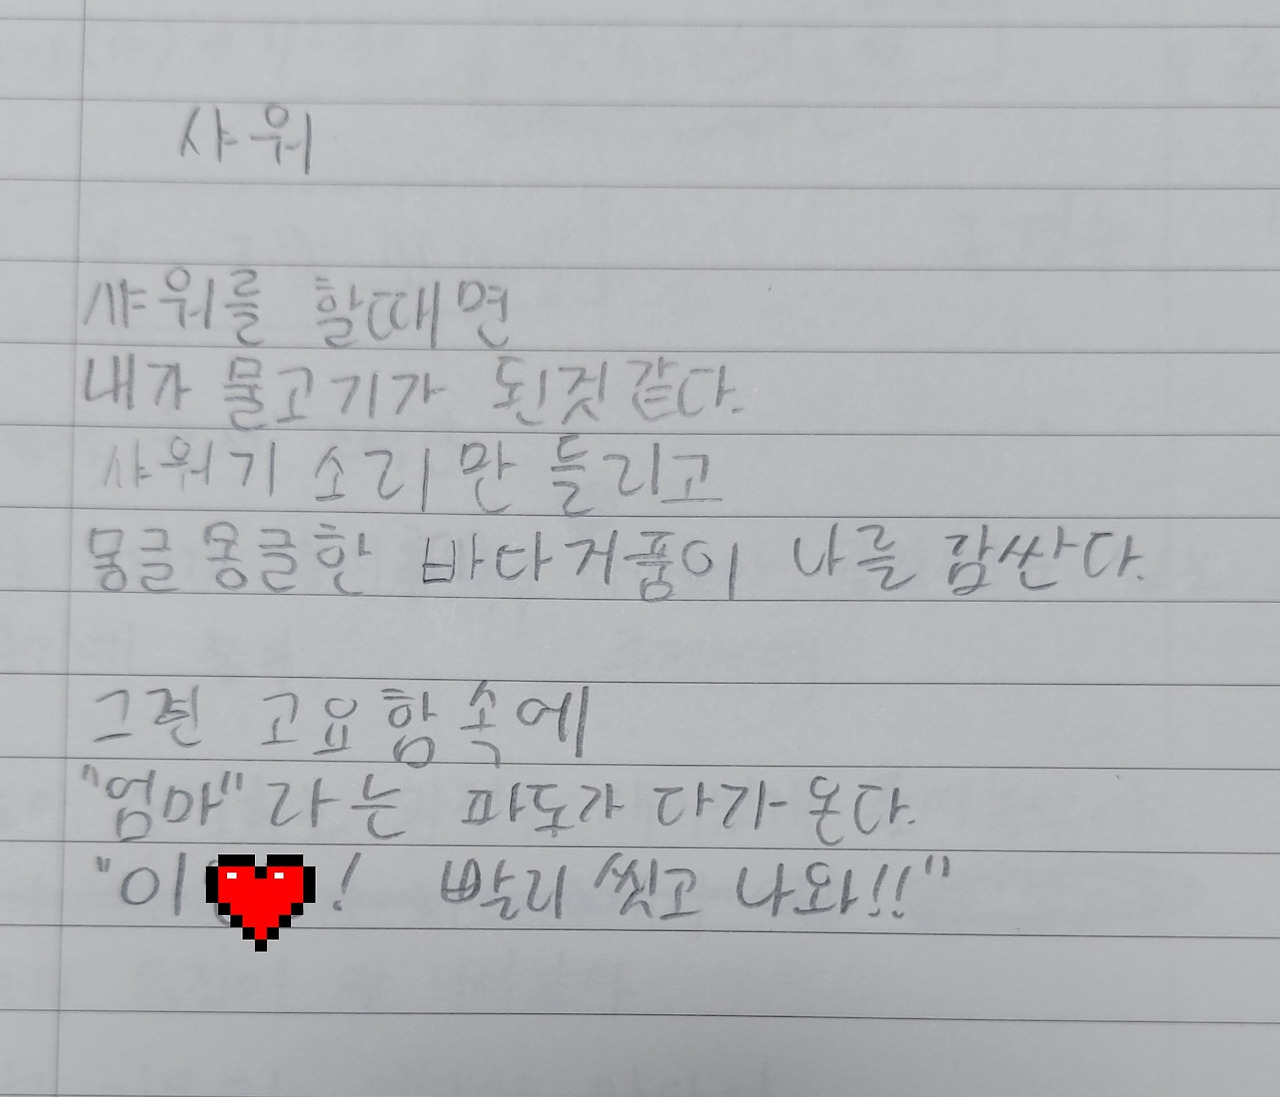 샤워
샤워를 할때면
내가 물고기가 된것 같다.
샤워기 소리만 들리고
뭉글 몽글한 바다거품이 나를 감싼다.
그런 고요함 속에
"엄마"라는 파도가 다가온다.
"이! 빨리 씻고 나와!!"